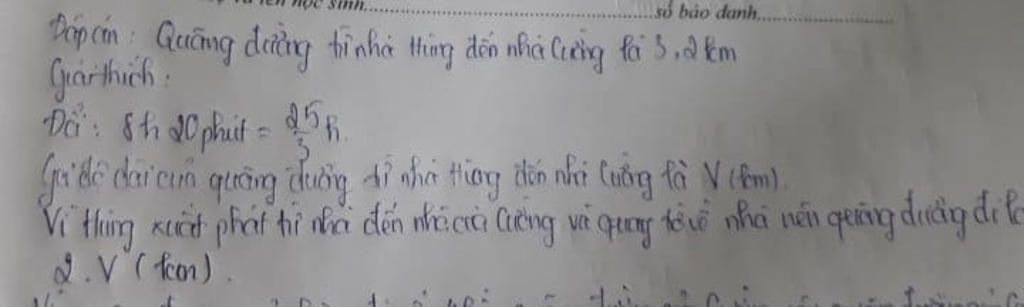 và tên học sinh............số báo danh............
Đáp án : Quãng đường từ nhà Hùng đến nhà Cường là 3,2 km
Giải thích :
Đổi : 8h 20 phút = 25/3 h.
Gọi độ dài của quãng đường từ nhà Hùng đến nhà Cường là V (km).
Vì Hùng xuất phát từ nhà đến nhà của Cường và quay trở về nhà nên quãng đường đi
2.V (km).